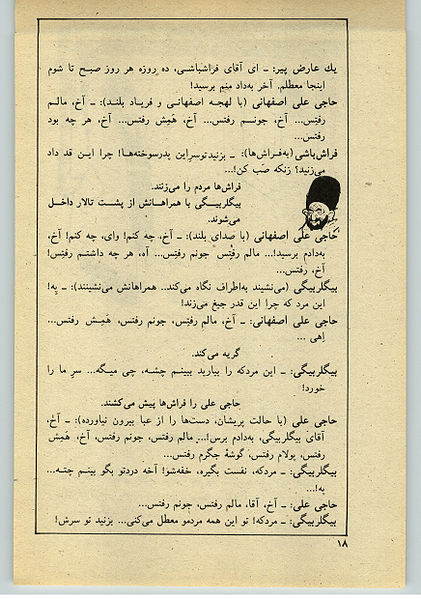 یك عارض پیر: ـ ای آقای فراشباشی، ده روزه هر روز صبح تا شوم
اینجا معطلم. آخر بهداد منم برسید!
حاجی علی اصفهانی (با لهجه اصفهانی و فریاد بلند): ـ آخ، مالم
رفتس... آخ، جونم رفتس... آخ، همش رفتس... آخ، هر چه بود
رفتس...
فراش‌باشی (به‌فراش‌ها): ـ بزنیدتوسراین پدرسوخته‌ها! چرا این قد داد
می‌زنید؟ زنکه صب کن!...
فراش‌ها مردم را می‌زنند.
بیگلربیگی با همراهانش از پشت تالار داخل
می‌شوند.
حاجی علی اصفهانی (با صدای بلند): ـ آخ، چه کنم! وای، چه کنم! آخ،
به‌دادم برسید!... مالم رفتس جونم رفتس... آه، هر چه داشتم رفتس!
آخ، رفتس...
بیگلربیگی (می‌نشیند به‌اطراف نگاه می‌کند.. همراهانش می‌نشینند): ـ په!
این مرد که چرا این قدر جیغ می‌زند!
حاجی علی اصفهانی: ـ آخ، مالم رفتس، جونم رفتس، همش رفتس...
اهی ...
گریه می‌کند.
بیگلربیگی: ـ این مردکه را بیارید ببینم چشه، چی میگه... سر ما را
خورد!
حاجی علی را فراش‌ها پیش می‌کشند.
حاجی علی (با حالت پریشان، دست‌ها را از عبا بیرون نیاورده): ـ آخ،
آقای بیگلربیگی، به‌دادم برس!... مالم رفتس، جونم رفتس، آخ، همش
رفتس، پولام رفتس، گوشهٔ جگرم رفتس...
بیگلربیگی: ـ مردکه، نفست بگیره، خفه‌شو! آخه دردتو بگو بینم چته...
په!...
حاجی علی: ـ آخ، آقا، مالم رفتس، جونم رفتس...
بیگلربیگی: ـ مردکه! تو این همه مردمو معطل می‌کنی... بزنید تو سرش!
۱۸